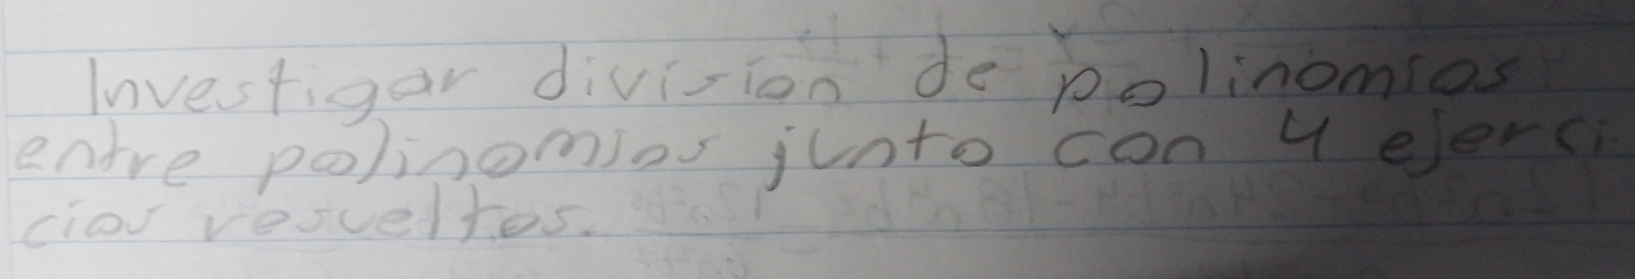 Investigar division de polinomios
entre polinomios junto con 4 ejerci
cios resueltos.